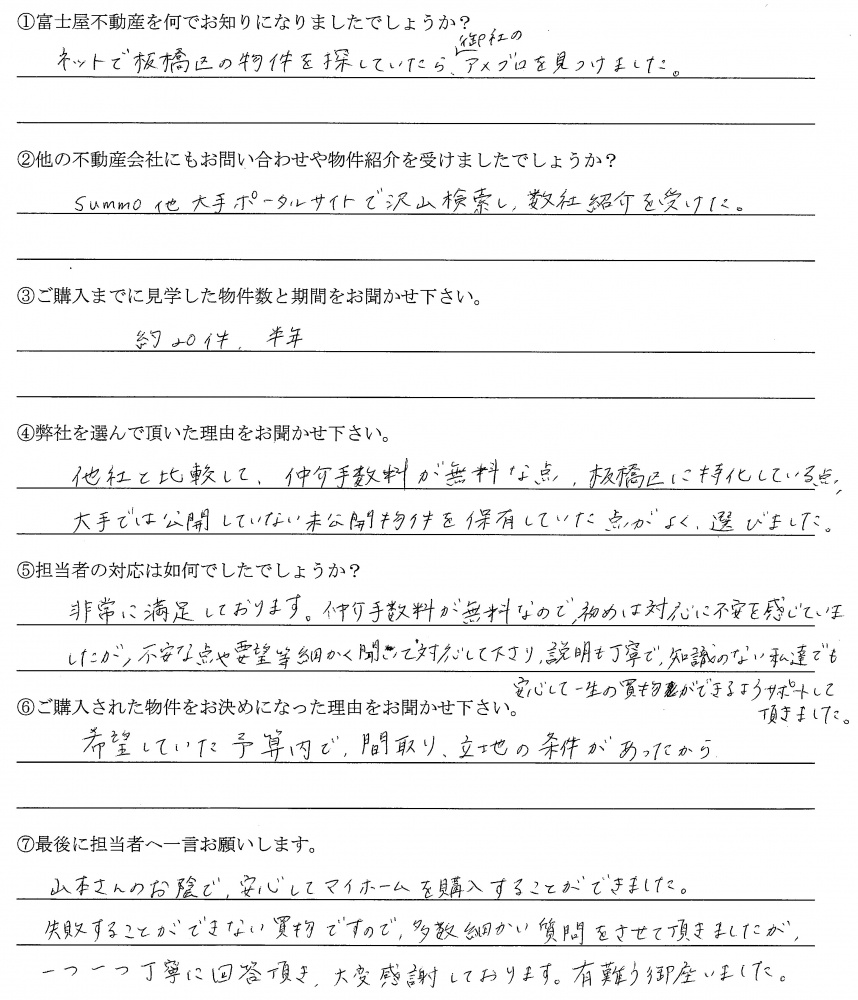 ①富士屋不動産を何でお知りになりましたでしょうか？
ネットで板橋区の物件を探していたら、御社のアメブロを見つけました。
②他の不動産会社にもお問い合わせや物件紹介を受けましたでしょうか？
summo他大手ポータルサイトで沢山検索し、数社紹介を受けた。
③ご購入までに見学した物件数と期間をお聞かせ下さい。
約20件、半年
④弊社を選んで頂いた理由をお聞かせ下さい。
他社と比較して、仲介手数料が無料な点、板橋区に特化している点、
大手では公開していない未公開物件を保有していた点がよく、選びました。
⑤担当者の対応は如何でしたでしょうか？
非常に満足しております。仲介手数料が無料なので、初めは対応に不安を感じていま
したが、不安な点や要望等細かく聞いて対応して下さり、説明も丁寧で、知識のない私達でも
安心して一生の買物ができるようサポートして
頂きました。
⑥ご購入された物件をお決めになった理由をお聞かせ下さい。
希望していた予算内で、間取り、立地の条件があったから
⑦最後に担当者へ一言お願いします。
山本さんのお陰で、安心してマイホームを購入することができました。
失敗することができない買物ですので、多数細かい質問をさせて頂きましたが、
一つ一つ丁寧に回答頂き、大変感謝しております。有難う御座いました。